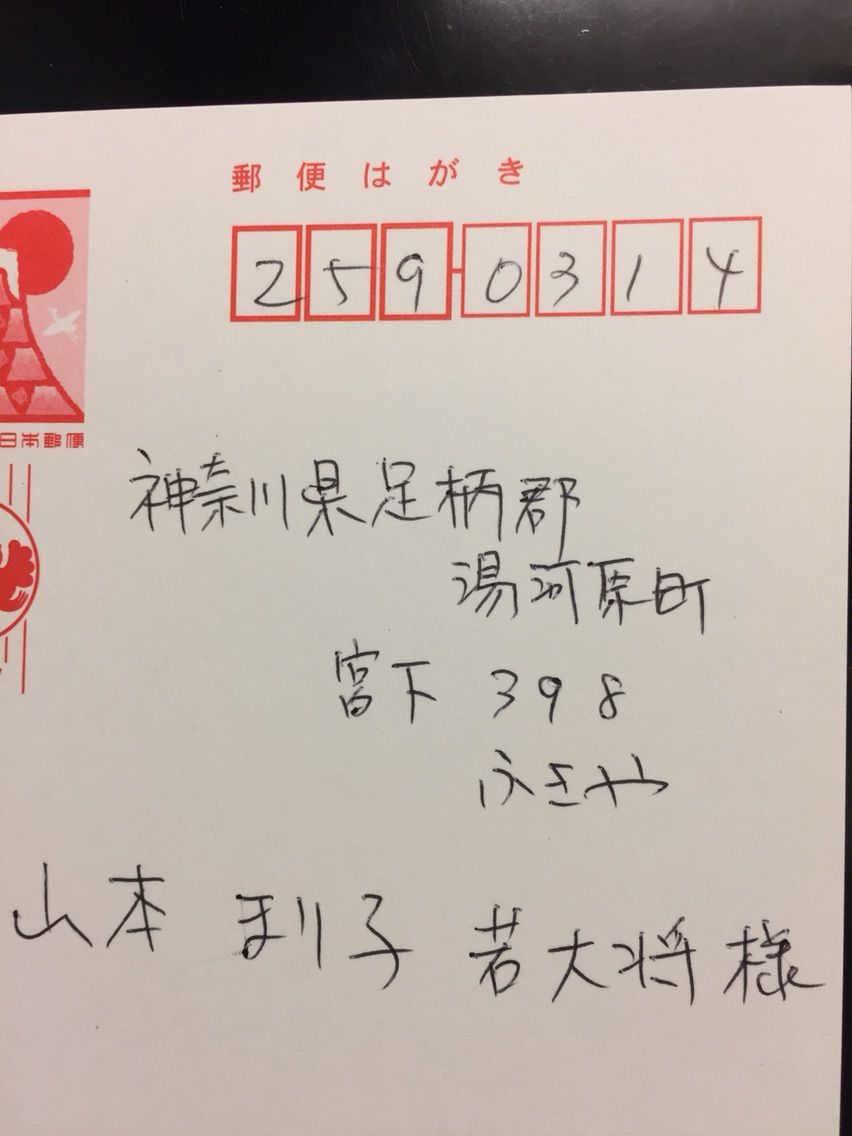 郵便はがき
259-0314
日本郵便
神奈川県足柄郡
湯河原町
宮下 398
ふきや
山本 まり子 若大将様